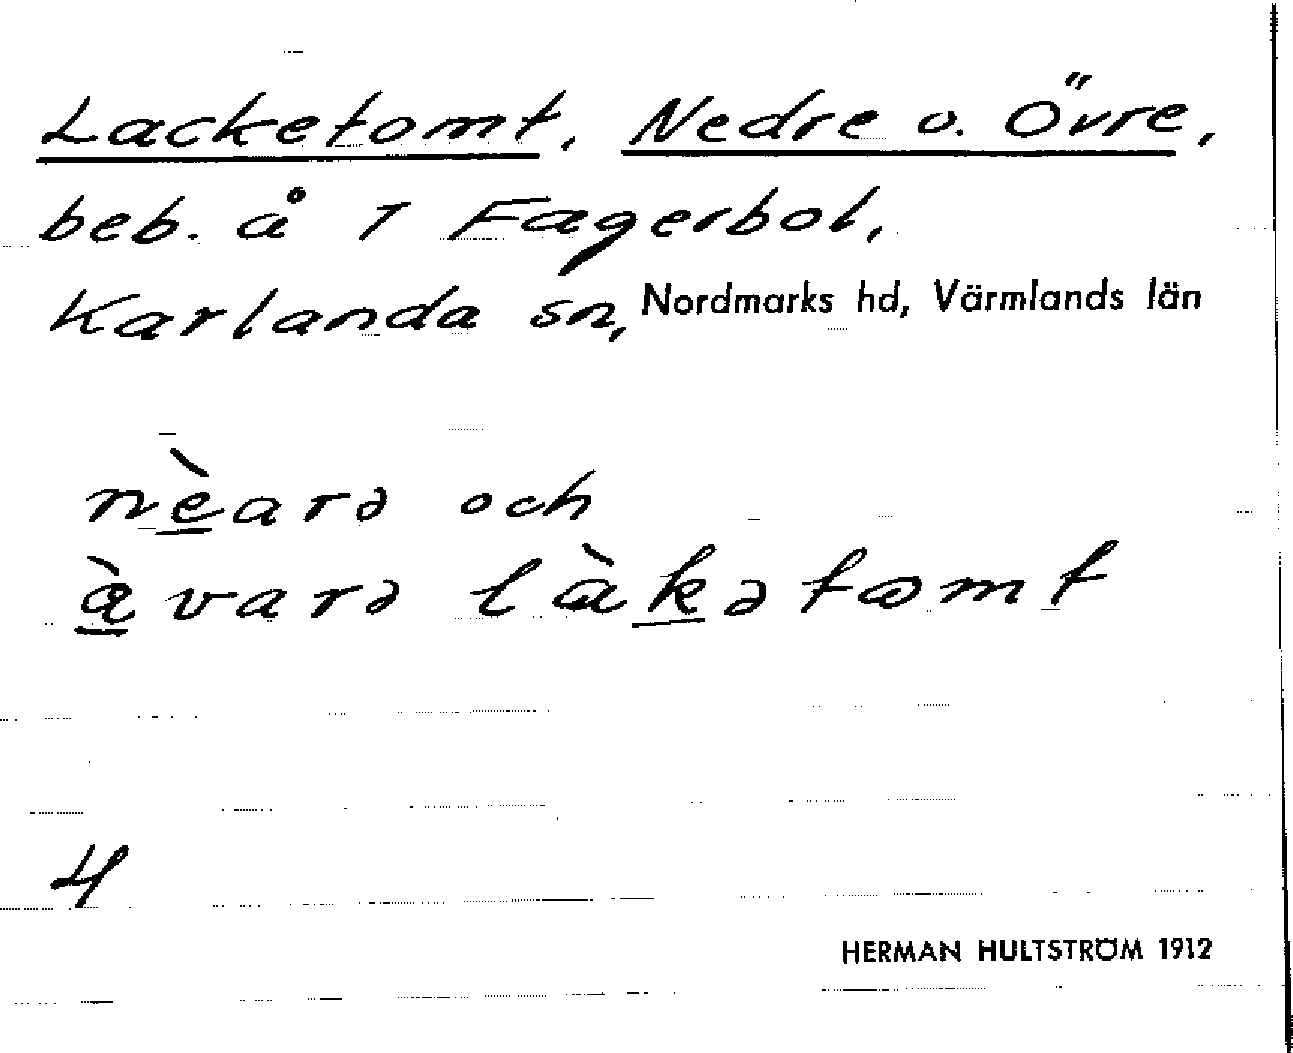 Lacketomt, Nedre o. Övre,
beb. å 1 Fagerbol,
Karlanda sn, Nordmarks hd, Värmlands län
nèarə och
àvarə làkətomt
4
HERMAN HULTSTRÖM 1912